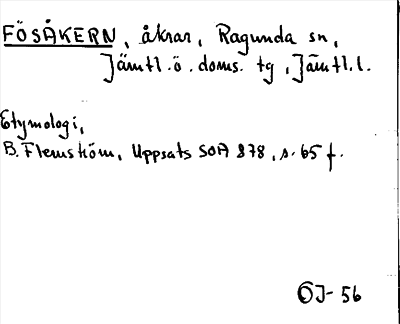 FÖSÅKERN, åkrar, Ragunda sn,
Jämtl. ö. doms. tg, Jämtl. l.
Etymologi,
B. Flemström, Uppsats SOA 878, s. 65 f.
OJ-56